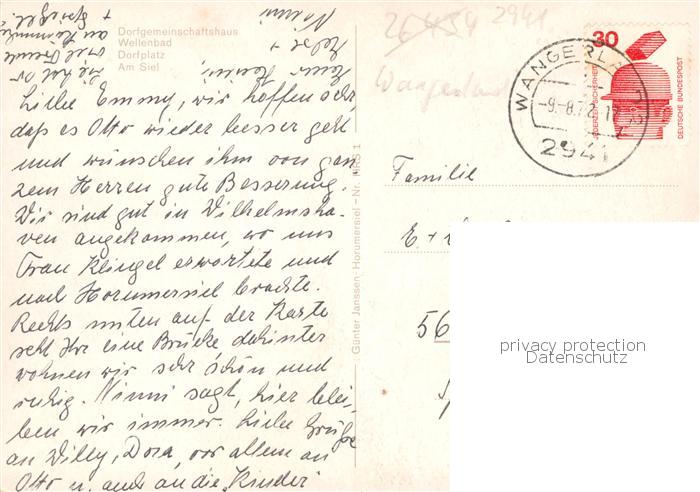 Dorfgemeinschaftshaus
Wellenbad
Dorfplatz
Am Siel
Liebe Emmy, wir hoffen sehr,
daß es Otto wieder besser geht
und wünschen ihm von gan
zem Herzen gute Besserung.
Wir sind gut in Wilhelmsha-
ven angekommen, wo uns
Frau Klingel erwartete und
nach Horumersiel brachte.
Rechts unten auf der Karte
seht Ihr eine Brücke dahinter
wohnen wir sehr schön und
ruhig. Ninni sagt, hier blei-
ben wir immer. Liebe Grüße
an Willy, Dora, vor allem an
Otto u. auch an die Kinder
Günter Janssen - Horumersiel - Nr.
26434 2941
Wangerland
WANGERLAND
-9.-8.72
2941
30
JEDERZEIT SICHERHEIT
DEUTSCHE BUNDESPOST
Familie
E +
56
privacy protection
Datenschutz